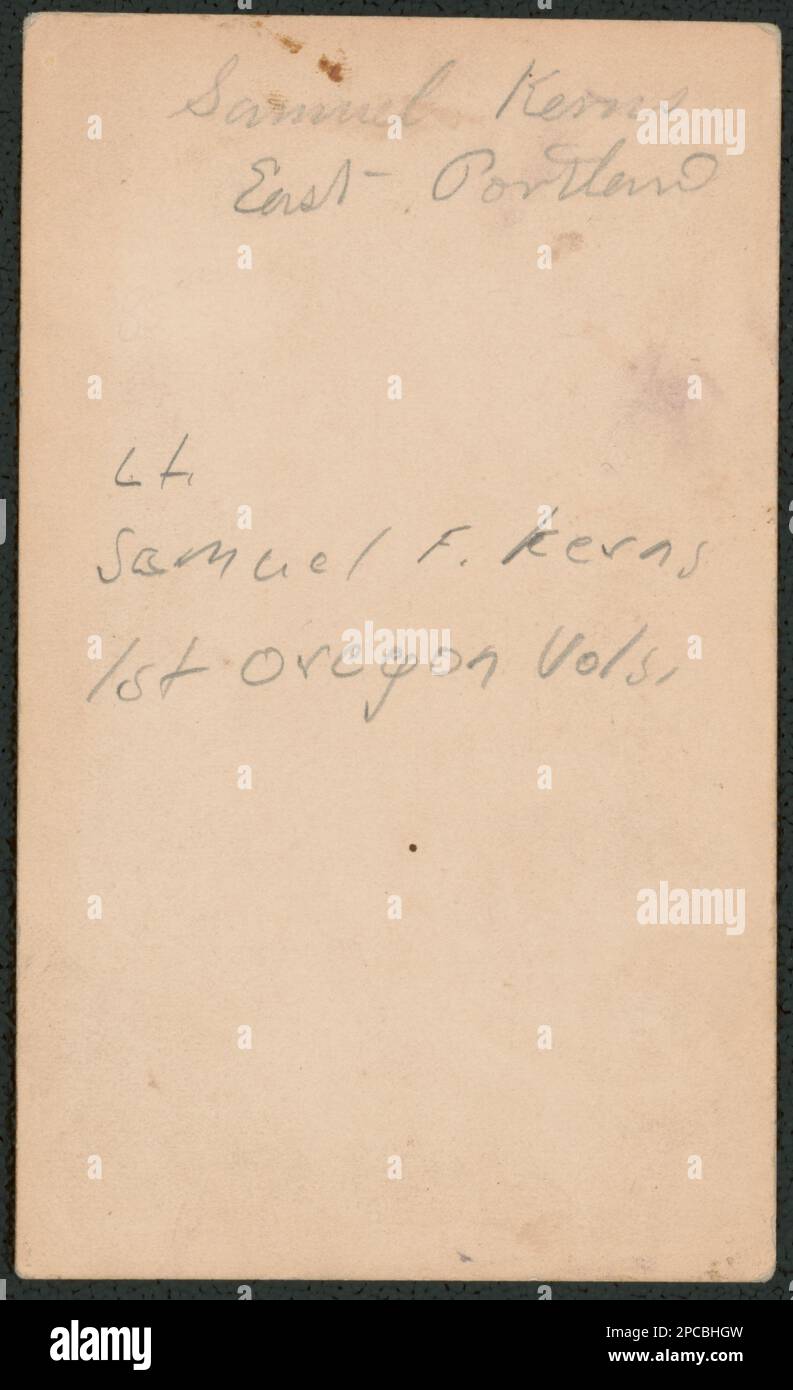 Samuel Kerns
East Portland
Lt.
Samuel F. Kerns
1st Oregon Vols.
alamy
alamy
alamy
alamy
Image ID: 2PCBHGW
www.alamy.com